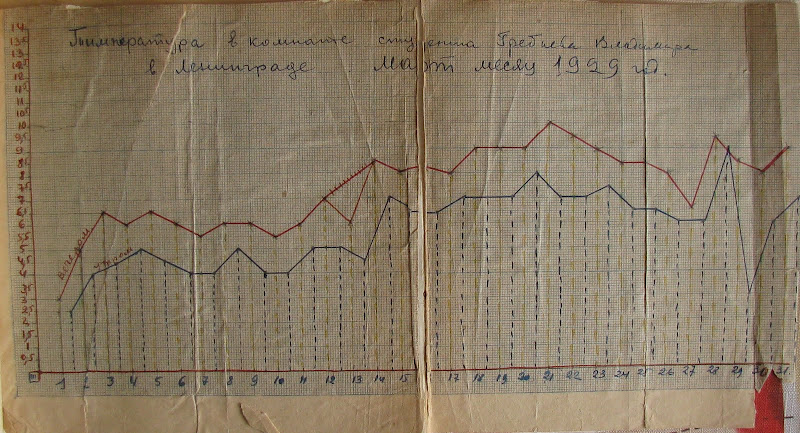 Температура в комнате студента Гребнева Владимира
в Ленинграде Март месяц 1929 год.
14
13,5
13
12,5
12
11,5
11
10,5
10
9,5
9
8,5
8
7,5
7
6,5
6
5,5
5
4,5
4
3,5
3
2,5
2
1,5
1
0,5
вечером
утром
1 2 3 4 5 6 7 8 9 10 11 12 13 14 15 17 18 19 20 21 22 23 24 25 26 27 28 29 30 31